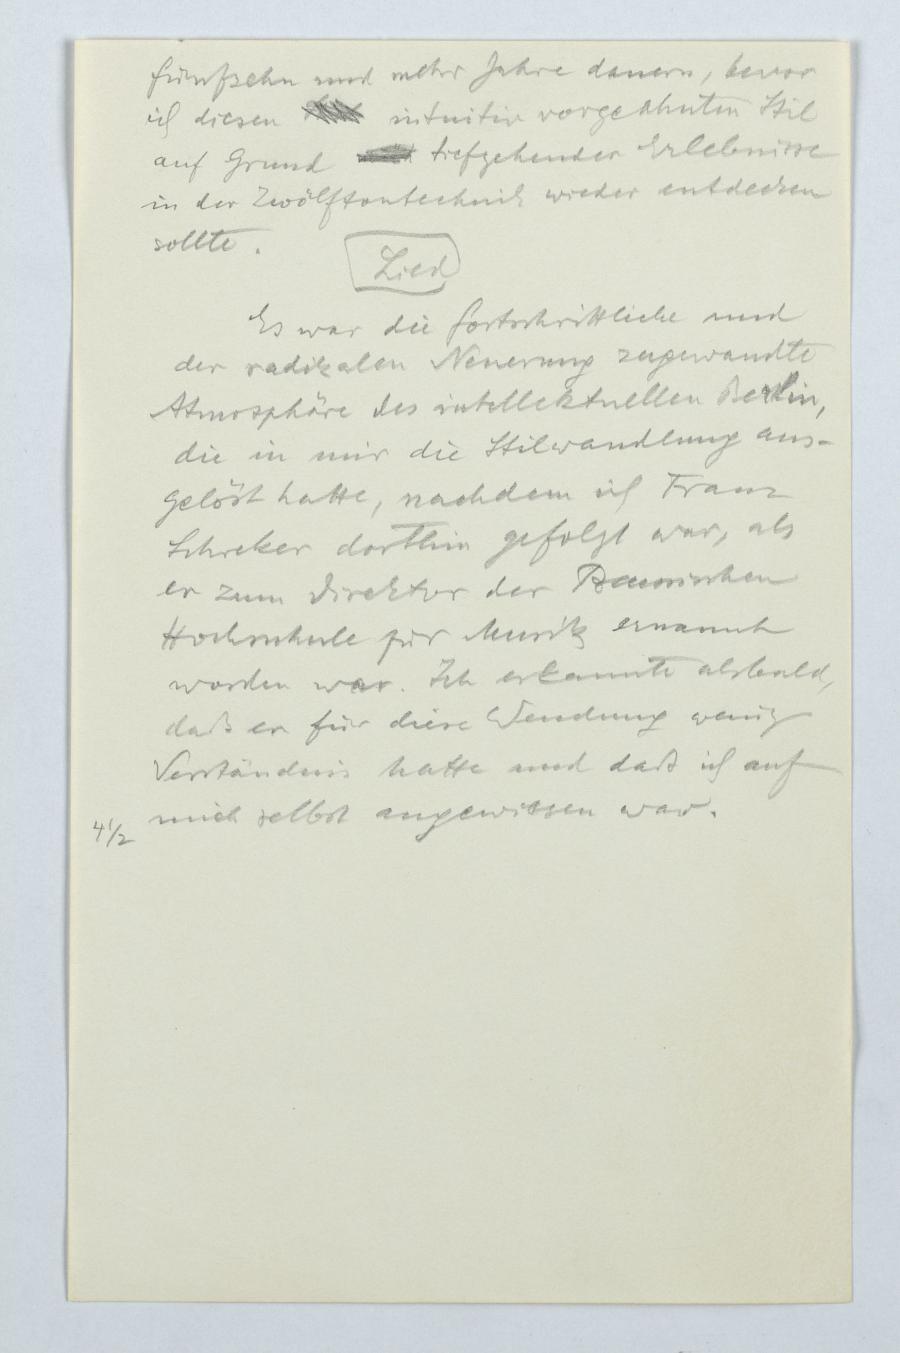 fünfzehn und mehr Jahre dauern, bevor
ich diesen intuitiv vorgeahnten Stil
auf Grund tiefgehender Erlebnisse
in der Zwölftontechnik wieder entdecken
sollte.
Lied
Es war die fortschrittliche und
der radikalen Neuerung zugewandte
Atmosphäre des intellektuellen Berlin,
die in mir die Stilwandlung aus-
gelöst hatte, nachdem ich Franz
Schreker dorthin gefolgt war, als
er zum Direktor der
Hochschule für Musik ernannt
worden war. Ich erkannte alsbald,
daß er für diese Wendung wenig
Verständnis hatte und daß ich auf
mich selbst angewissen war.
4 1/2